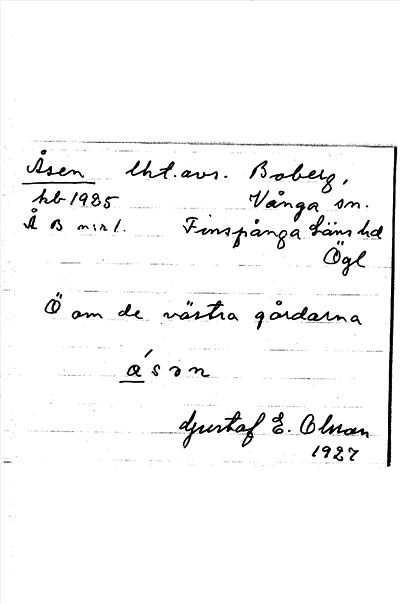 Åsen lht. avs. Boberg,
hb 1985 Vånga sn.
Å B nr 1. Finspånga Läns hd
Ögl
Ö om de västra gårdarna
åsən
Gustaf E. Olsson
1927